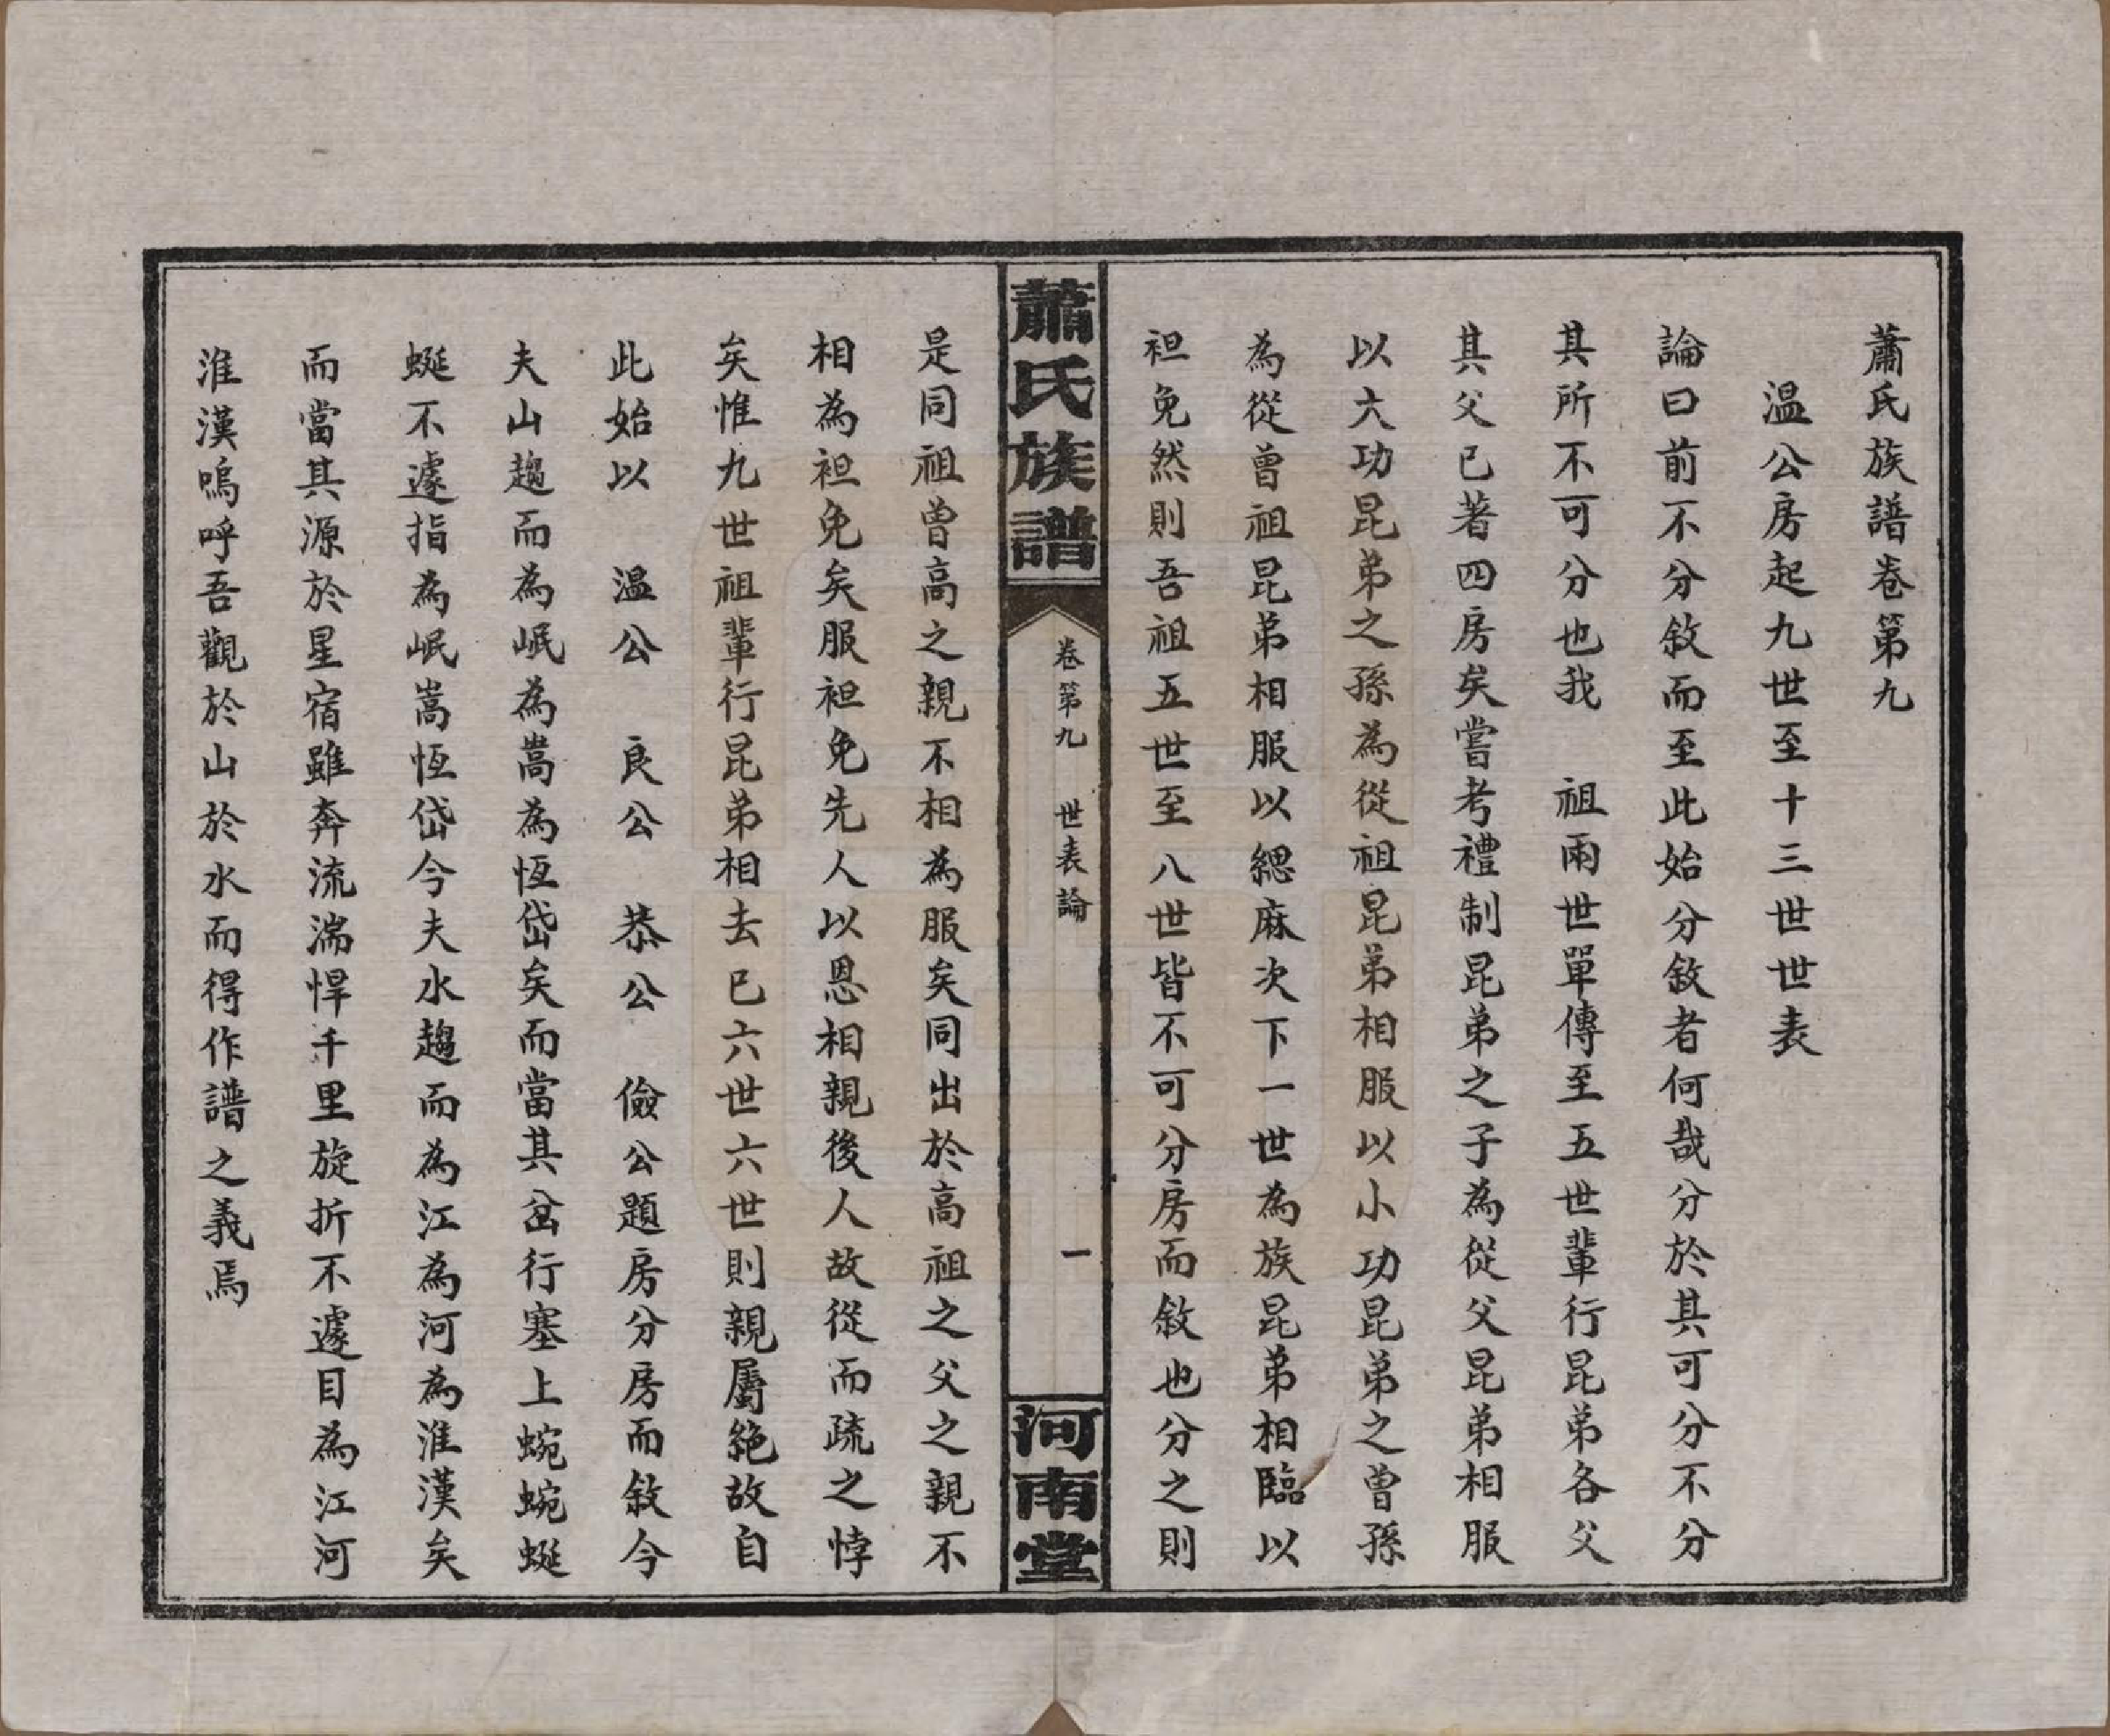 蕭氏族譜卷第九
溫公房起九世至十三世世表
論曰前不分敘而至此始分敘者何哉分於其可分不分
其所不可分也我　祖兩世單傳至五世輩行昆弟各父
其父已著四房矣嘗考禮制昆弟之子為從父昆弟相服
以大功昆弟之孫為從祖昆弟相服以小功昆弟之曾孫
為從曾祖昆弟相服以緦麻次下一世為族昆弟相臨以
袒免然則吾祖五世至八世皆不可分房而敘也分之則
蕭氏族譜
卷第九　世表論
一
河南堂
是同祖曾高之親不相為服矣同出於高祖之父之親不
相為袒免矣服袒免先人以恩相親後人故從而疏之悖
矣惟九世祖輩行昆弟相去已六世六世則親屬絕故自
此始以　溫公　良公　恭公　儉公題房分房而敘今
夫山趨而為岷為嵩為恆岱矣而當其岔行塞上蜿蜿蜒
蜒不遽指為岷嵩恆岱今夫水趨而為江為河為淮漢矣
而當其源於星宿雖奔流湍悍千里旋折不遽目為江河
淮漢嗚呼吾觀於山於水而得作譜之義焉